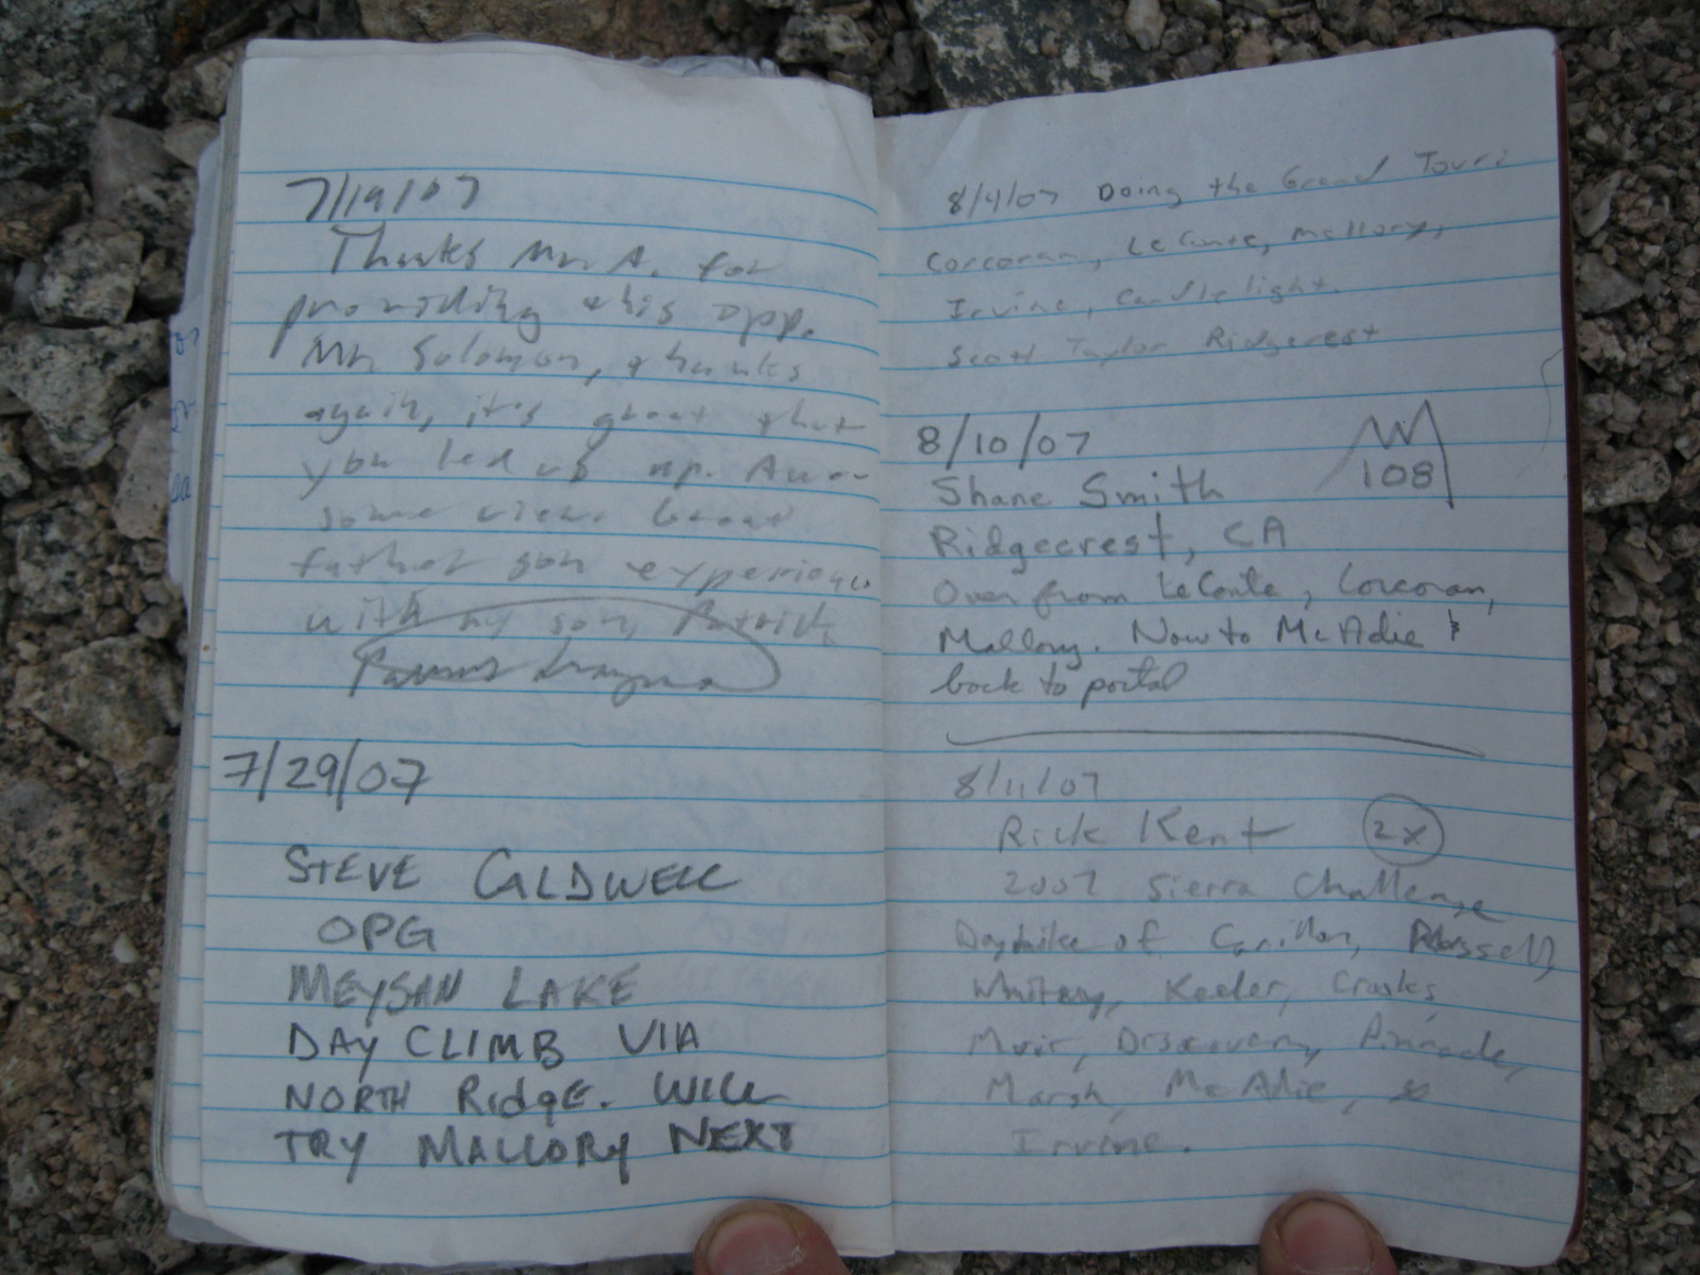 7/19/07
Thanks Mr A. for
providing this opp.
Mr Solomon, thanks
again, it's great that
you led us up. Awe-
some view. Great
father son experience
with my son, Patrick
7/29/07
STEVE CALDWELL
OPG
MEYSAN LAKE
DAY CLIMB VIA
NORTH RIdgE. WILL
TRY MALLORY NEXT
8/4/07 Doing the Grand Tour:
Corcoran, LeConte, Mallory,
Irvine, Candlelight.
Scott Taylor Ridgecrest
8/10/07
108
Shane Smith
Ridgecrest, CA
Over from LeConte, Corcoran,
Mallory. Now to McAdie &
back to portal
8/11/07
Rick Kent 2x
2007 Sierra Challenge
Dayhike of Carillon, Russell,
Whitney, Keeler, Crooks,
Muir, Discovery, Pinnacle,
Marsh, McAdie, &
Irvine.